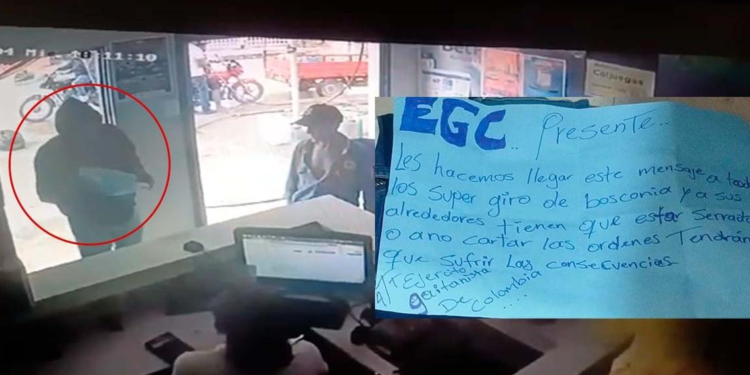 04 Mie 11:10
Coljuegos
EGC.. Presente...
Les hacemos llegar este mensaje a tod
los super giro de bosconia y a sus
alrededores tienen que estar serrado
o ano cartar las ordenes Tendrán
que sufrir las consecuencias
ATT Ejercito
gaitanista
De Colombia....